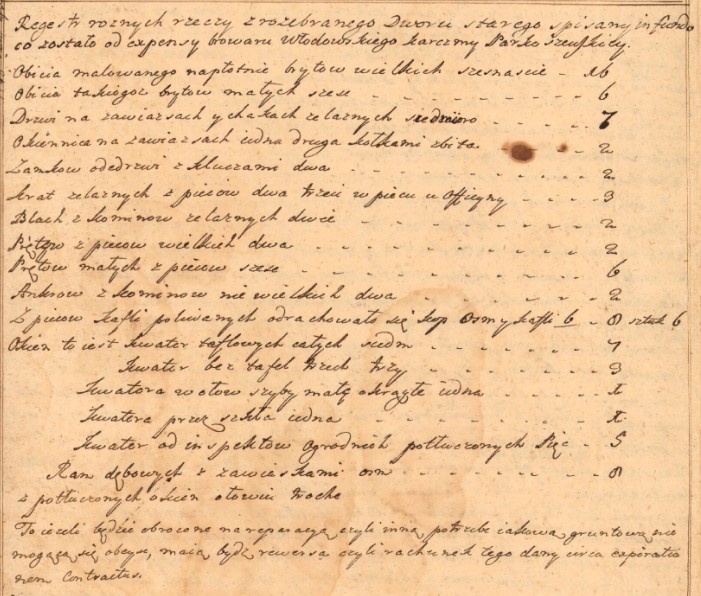 Regestr roznych rzeczy z rozebranego Dworu starego spisany in fundo
co zostało od expensy bowaru Włodowskiego karczmy Parkoszewskiey.
Obicia malowanego napłotnie brytow wielkich szesnascie - 16
Obicia takiogoż brytow małych szesc - 6
Drzwi na zawiasach y hakach zelaznych siedmioro - 7
Okiennica na zawiasach iedna druga kołkami zbita - 2
Zamkow ode drzwi z kluczami dwa - 2
Krat zelaznych z piecow dwa trzeci w piecu w Officyny - 3
Blach z kominow zelaznych dwie - 2
Prętow z piecow wielkich dwa - 2
Prętow małych z piecow szesc - 6
Ankrow z kominow nie wielkich dwa - 2
Z piecow kafli polewanych odrachowało się kop osm y kafli 6 - 8 sztuk 6
Okien to iest kwater taflowych całych siedm - 7
Kwater bez tafel trzech trzy - 3
Kwatera w ołow szyby małe okrągłe iedna - 1
Kwatera przez szkła iedna - 1
Kwater od inspektow ogrodnich potłuczonych pięc - 5
Ram dębowych z zawieskami osm - 8
z potłuczonych okien ołowiu troche
To iezeli będzie obrocone na reperacyą czyli inną potrzebe iakową gruntową nie
mogącą się obeysc, maią bydz rewersa czyli rachunek tego dany circa expiratio
nem Contractus.